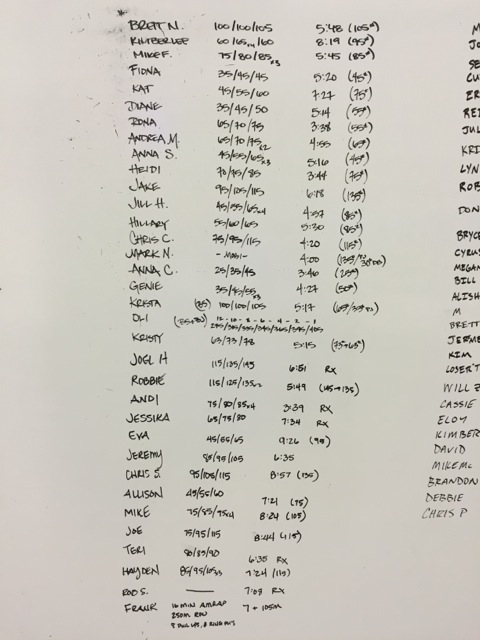 BRETT N. 100/100/105 5:48 (105#)
KIMBERLEE 60/65x4/60 8:19 (45#)
MIKE F. 75/80/85x3 5:45 (85#)
FIONA 35/45/45 5:20 (45#)
KAT 45/55/60 7:27 (75#)
DIANE 35/45/50 5:14 (55#)
RONA 65/70/75 3:38 (55#)
ANDREA M. 65/70/75x2 4:55 (65#)
ANNA S. 45/55/65x3 5:16 (45#)
HEIDI 70/75/85 3:44 (75#)
JAKE 95/105/115 6:18 (135#)
JILL H. 45/55/65x4 4:57 (85#)
HILLARY 55/60/65 5:30 (85#)
CHRIS C. 75/95/115 4:20 (115#)
MARK N. 4:00
ANNA C. 25/35/45 3:46 (25#)
GENIE 35/45/55 4:27 (50#)
KRISTA (85) 100/100/105 5:17
OLI 12 - 10 - 8 - 6 - 4 - 2 - 1
KRISTY 63/73/78 5:15 (75#65#)
JOEL H 115/135/145 6:51 RX
ROBBIE 115/125/135x2 5:49 (145→135)
ANDI 75/80/85x4 3:39 RX
JESSIKA 65/75/80 7:34 RX
EVA 45/55/65 9:26 (95)
JEREMY 85/95/105 6:35
CHRIS S. 95/105/115 8:57 (135)
ALLISON 45/55/60 7:21 (75)
MIKE 75/85/95x4 8:24 (105)
JOE 75/95/115 8:44 (115)
TERI 80/85/90 6:35 RX
HAYDEN 85/95/105x3 7:24 (115)
ROD S. — 7:09 RX
FRANK 16 MIN AMRAP 7 + 105M
250M ROW
M
JO
SE
CU
ER
REI
JUL
KRI
LYN
ROB
DON
BRYCE
CYRUS
MEGAN
BILL
ALISH
M
BRETT
JEREM
KIM
LOSER T
WILL Z
CASSIE
ELOY
KIMBER
DAVID
MIKE Mc
BRANDON
DEBBIE
CHRIS P